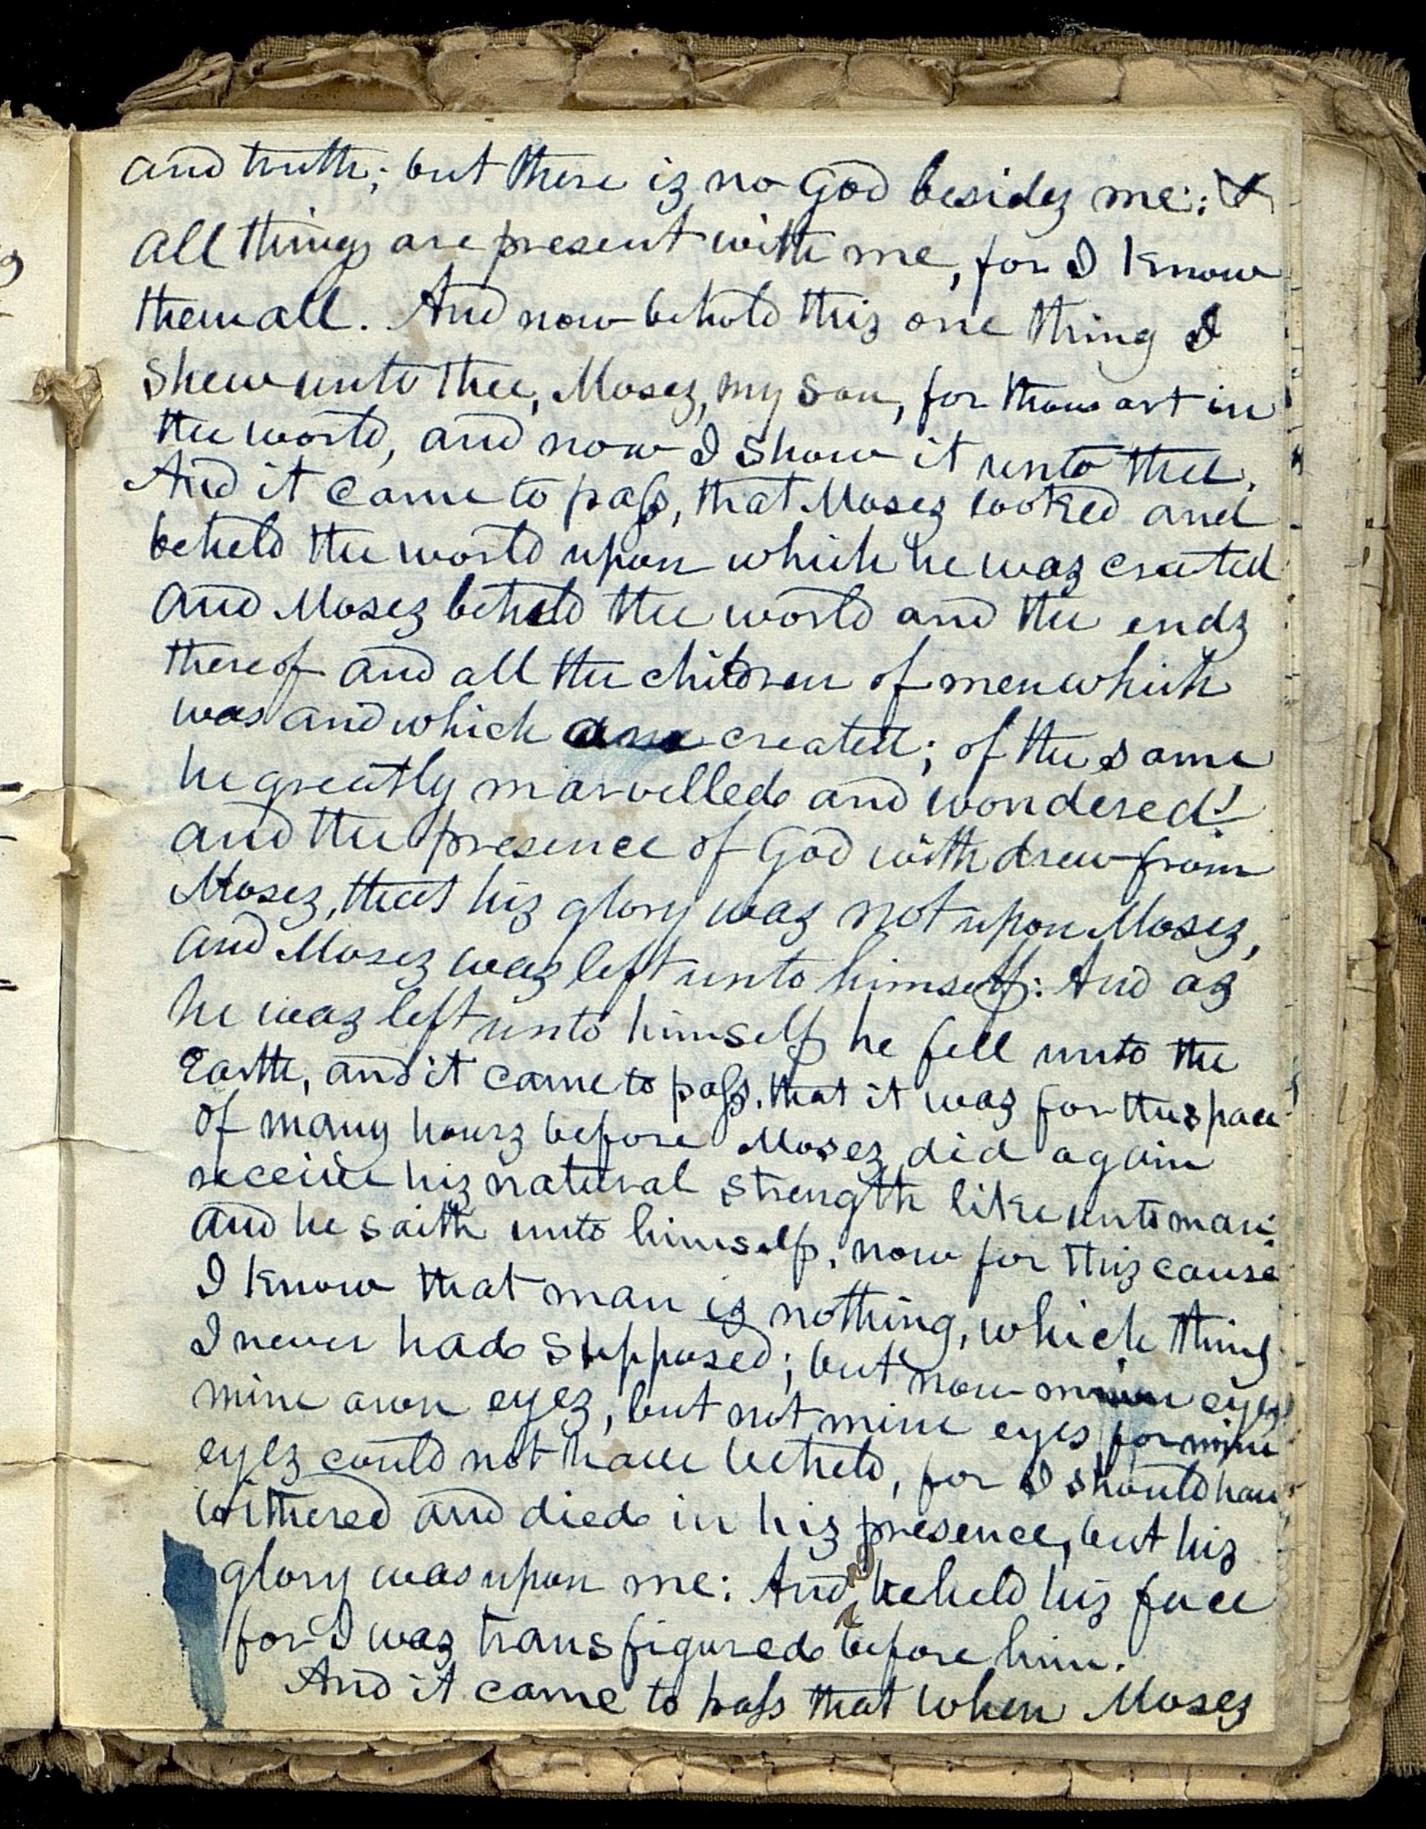 and truth; but there is no God besides me: &
all things are present with me, for I know
them all. And now behold this one thing I
shew unto thee, Moses, my son, for thou art in
the world, and now I show it unto thee.
And it came to pass, that Moses looked and
beheld the world upon which he was created
and Moses beheld the world and the ends
thereof and all the children of men which
was and which are created; of the same
he greatly marvelled and wondered!
and the presence of God withdrew from
Moses, that his glory was not upon Moses,
and Moses was left unto himself: And as
he was left unto himself he fell unto the
Earth, and it came to pass, that it was for the space
of many hours before Moses did again
receive his natural strength like unto man:
and he saith unto himself, now for this cause
I know that man is nothing, which thing
I never had supposed; but now mine eyes,
mine own eyes, but not mine eyes for mine
eyes could not have beheld, for I should have
withered and died in his presence, but his
glory was upon me: And I beheld his face
for I was transfigured before him.
And it came to pass that when Moses